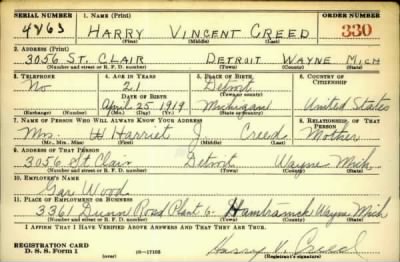 SERIAL NUMBER 1. NAME (Print) ORDER NUMBER
4863 HARRY VINCENT CREED 330
(First) (Middle) (Last)
2. ADDRESS (Print)
3056 ST. CLAIR DETROIT WAYNE MICH
(Number and street or R. F. D. number) (Town) (County) (State)
3. TELEPHONE 4. AGE IN YEARS 5. PLACE OF BIRTH 6. COUNTRY OF CITIZENSHIP
No 21 Detroit
DATE OF BIRTH (Town or county)
April 25 1919 Michigan United States
(Exchange) (Number) (Mo.) (Day) (Yr.) (State or country)
7. NAME OF PERSON WHO WILL ALWAYS KNOW YOUR ADDRESS 8. RELATIONSHIP OF THAT PERSON
Mrs. Harriet J. Creed Mother
(Mr., Mrs., Miss) (First) (Middle) (Last)
9. ADDRESS OF THAT PERSON
3056 St Clair Detroit Wayne Mich
(Number and street or R. F. D. number) (Town) (County) (State)
10. EMPLOYER'S NAME
Gar Wood
11. PLACE OF EMPLOYMENT OR BUSINESS
3361 Dunn Road Plant 6 Hamtramck Wayne Mich
(Number and street or R. F. D. number) (Town) (County) (State)
I AFFIRM THAT I HAVE VERIFIED ABOVE ANSWERS AND THAT THEY ARE TRUE.
REGISTRATION CARD
D. S. S. Form 1 (over) 16—17105 Harry V. Creed
(Registrant's signature)